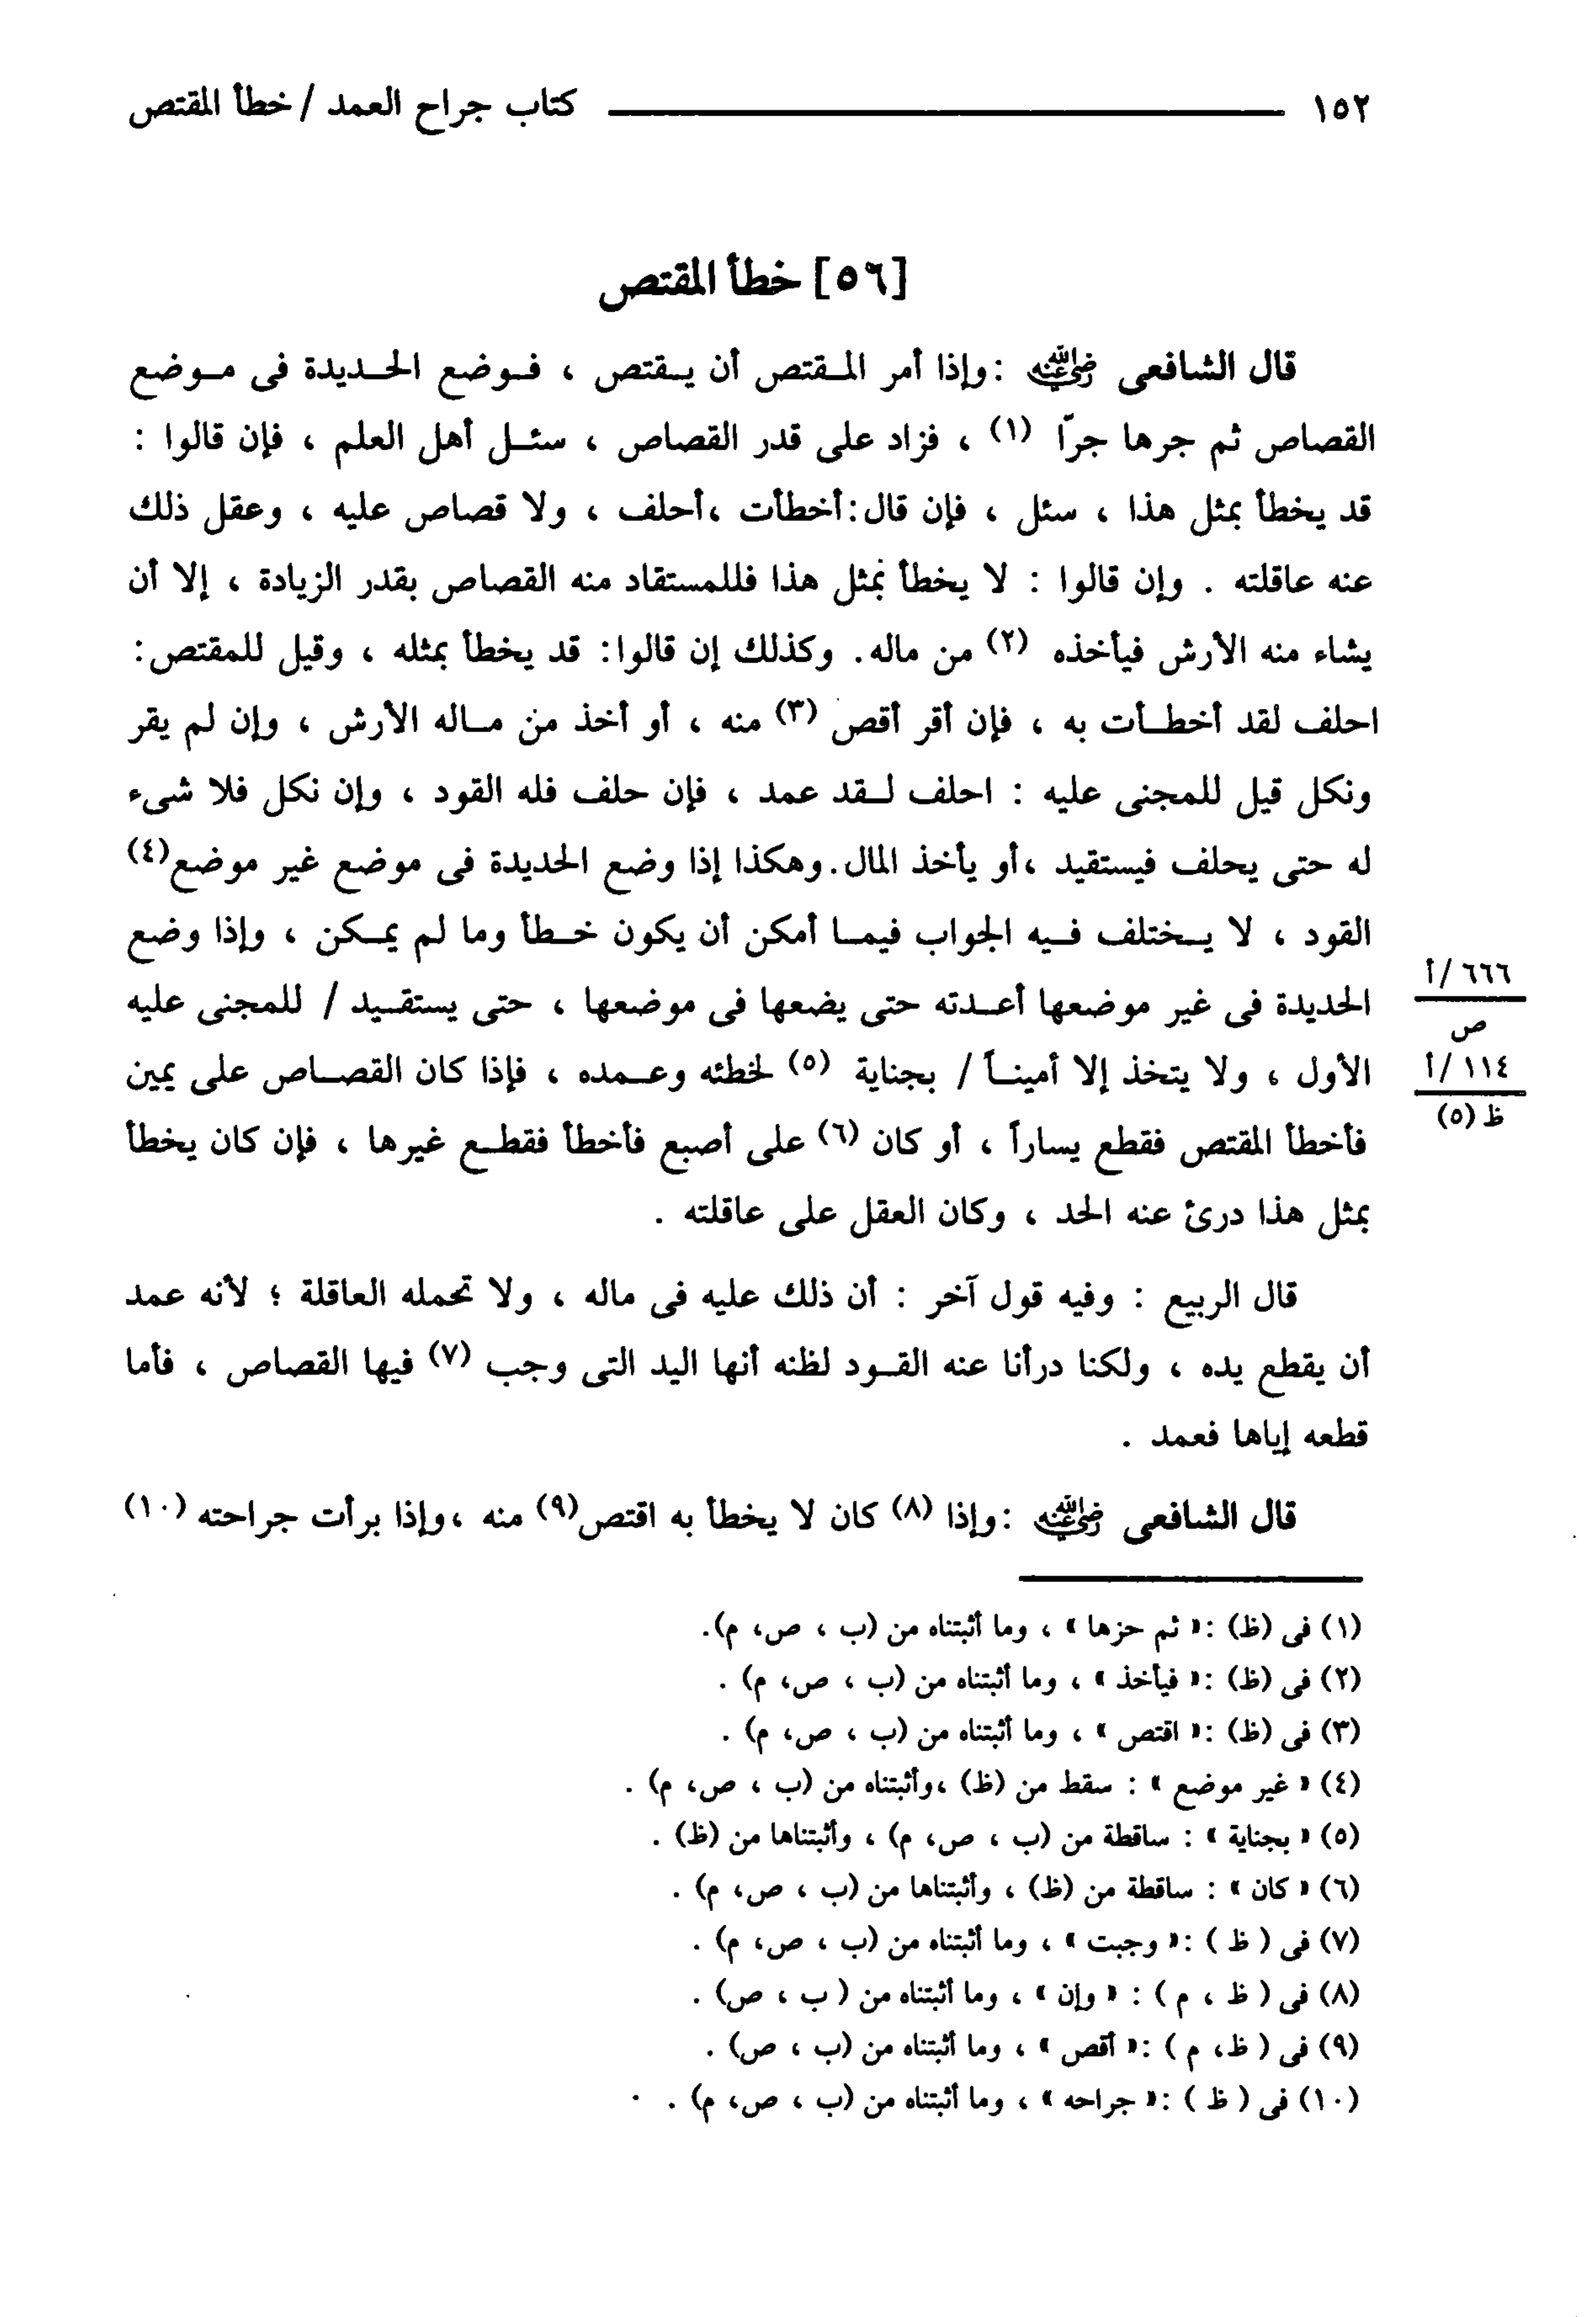 ١٥٢ كتاب جراح العمد / خطأ المقتص
[٥٦] خطأ المقتص
قال الشافعى رضي الله عنه : وإذا أمر المقتص أن يقتص ، فوضع الحديدة فى موضع
القصاص ثم جرها جرّا (١) ، فزاد على قدر القصاص ، سئل أهل العلم ، فإن قالوا :
قد يخطأ بمثل هذا ، سئل ، فإن قال: أخطأت ،أحلف ، ولا قصاص عليه ، وعقل ذلك
عنه عاقلته . وإن قالوا : لا يخطأ بمثل هذا فللمستقاد منه القصاص بقدر الزيادة ، إلا أن
يشاء منه الأرش فيأخذه (٢) من ماله. وكذلك إن قالوا: قد يخطأ بمثله ، وقيل للمقتص:
احلف لقد أخطأت به ، فإن أقر أقص (٣) منه ، أو أخذ من ماله الأرش ، وإن لم يقر
ونكل قيل للمجنى عليه : احلف لقد عمد ، فإن حلف فله القود ، وإن نكل فلا شىء
له حتى يحلف فيستقيد ،أو يأخذ المال.وهكذا إذا وضع الحديدة فى موضع غير موضع(٤)
القود ، لا يختلف فيه الجواب فيما أمكن أن يكون خطأ وما لم يمكن ، وإذا وضع
الحديدة فى غير موضعها أعدته حتى يضعها فى موضعها ، حتى يستقيد / للمجنى عليه
٦٦٦ /أ
ص
الأول ، ولا يتخذ إلا أميناً / بجناية (٥) لخطئه وعمده ، فإذا كان القصاص على يمين
١١٤ /أ
ظ (٥)
فأخطأ المقتص فقطع يساراً ، أو كان (٦) على أصبع فأخطأ فقطع غيرها ، فإن كان يخطأ
بمثل هذا درئ عنه الحد ، وكان العقل على عاقلته .
قال الربيع : وفيه قول آخر : أن ذلك عليه فى ماله ، ولا تحمله العاقلة ؛ لأنه عمد
أن يقطع يده ، ولكنا درأنا عنه القود لظنه أنها اليد التى وجب (٧) فيها القصاص ، فأما
قطعه إياها فعمد .
قال الشافعى رضي الله عنه : وإذا (٨) كان لا يخطأ به اقتص(٩) منه ،وإذا برأت جراحته (١٠)
(١) فى (ظ) :« ثم حزها » ، وما أثبتناه من (ب ، ص، م).
(٢) فى (ظ) :« فيأخذ » ، وما أثبتناه من (ب ، ص، م) .
(٣) فى (ظ) :« اقتص » ، وما أثبتناه من (ب ، ص، م) .
(٤) « غير موضع » : سقط من (ظ) ،وأثبتناه من (ب ، ص، م) .
(٥) « بجناية » : ساقطة من (ب ، ص، م) ، وأثبتناها من (ظ) .
(٦) « كان » : ساقطة من (ظ) ، وأثبتناها من (ب ، ص، م) .
(٧) فى ( ظ ) :« وجبت » ، وما أثبتناه من (ب ، ص، م) .
(٨) فى ( ظ ، م ) : « وإن » ، وما أثبتناه من ( ب ، ص) .
(٩) فى ( ظ، م ) :« أقص » ، وما أثبتناه من (ب ، ص) .
(١٠) فى ( ظ ) :« جراحه » ، وما أثبتناه من (ب ، ص، م) .